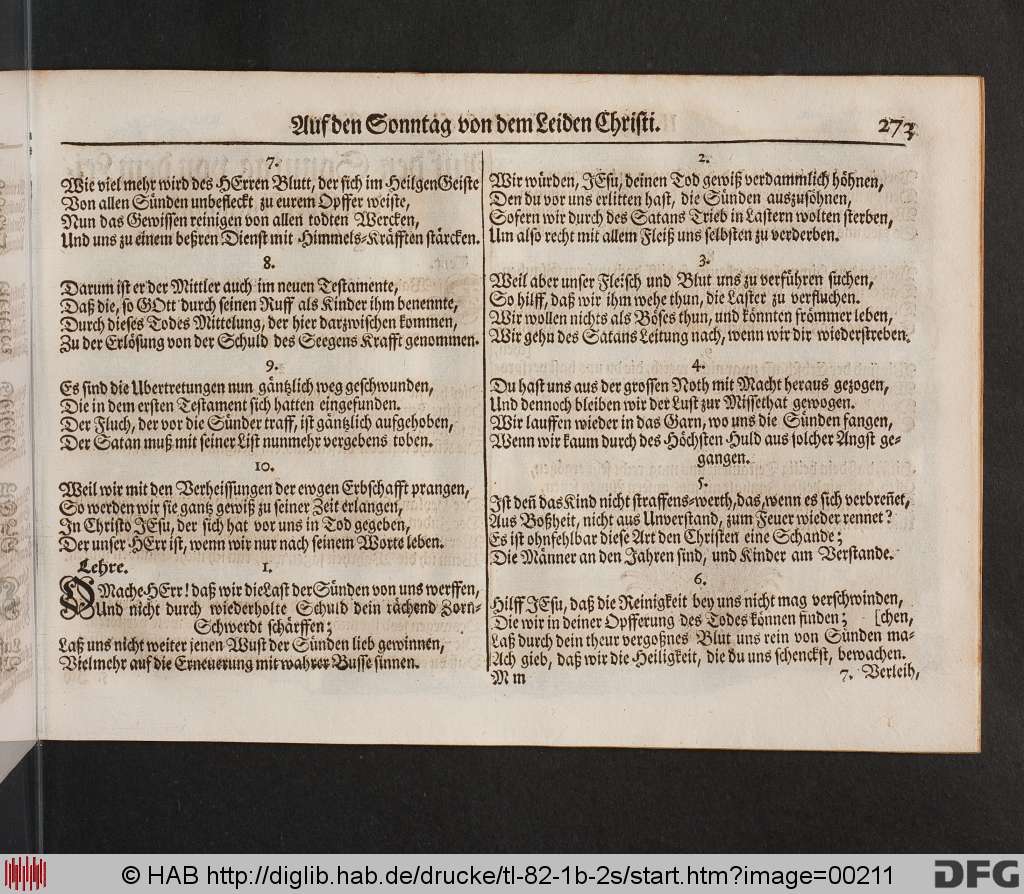 Auf den Sonntag von dem Leiden Christi.
273
7.
Wie viel mehr wird des HErren Blutt, der sich im Heilgen Geiste
Von allen Sünden unbefleckt zu eurem Opffer weiste,
Nun das Gewissen reinigen von allen todten Wercken,
Und uns zu einem beßren Dienst mit Himmels-Kräfften stärcken.
8.
Darum ist er der Mittler auch im neuen Testamente,
Daß die, so GOtt durch seinen Ruff als Kinder ihm benennte,
Durch dieses Todes Mittelung, der hier darzwischen kommen,
Zu der Erlösung von der Schuld des Seegens Krafft genommen.
9.
Es sind die Ubertretungen nun gäntzlich weg geschwunden,
Die in dem ersten Testament sich hatten eingefunden.
Der Fluch, der vor die Sünder traff, ist gäntzlich aufgehoben,
Der Satan muß mit seiner List nunmehr vergebens toben.
10.
Weil wir mit den Verheissungen der ewgen Erbschafft prangen,
So werden wir sie gantz gewiß zu seiner Zeit erlangen,
In Christo JEsu, der sich hat vor uns in Tod gegeben,
Der unser HErr ist, wenn wir nur nach seinem Worte leben.
Lehre. 1.
O Mache HErr! daß wir die Last der Sünden von uns werffen,
Und nicht durch wiederholte Schuld dein rächend Zorn-
Schwerdt schärffen;
Laß uns nicht weiter jenen Wust der Sünden lieb gewinnen,
Vielmehr auf die Erneuerung mit wahrer Busse sinnen.
2.
Wir würden, JEsu, deinen Tod gewiß verdammlich höhnen,
Den du vor uns erlitten hast, die Sünden auszusöhnen,
Sofern wir durch des Satans Trieb in Lastern wolten sterben,
Um also recht mit allem Fleiß uns selbsten zu verderben.
3.
Weil aber unser Fleisch und Blut uns zu verführen suchen,
So hilff, daß wir ihm wehe thun, die Laster zu verfluchen.
Wir wollen nichts als Böses thun, und könnten frömmer leben,
Wir gehn des Satans Leitung nach, wenn wir dir wiederstreben.
4.
Du hast uns aus der grossen Noth mit Macht heraus gezogen,
Und dennoch bleiben wir der Lust zur Missethat gewogen.
Wir lauffen wieder in das Garn, wo uns die Sünden fangen,
Wenn wir kaum durch des Höchsten Huld aus solcher Angst ge-
gangen.
5.
Ist deñ das Kind nicht straffens-werth, das, wenn es sich verbreñet,
Aus Boßheit, nicht aus Unverstand, zum Feuer wieder rennet?
Es ist ohnfehlbar diese Art den Christen eine Schande;
Die Männer an den Jahren sind, und Kinder am Verstande.
6.
Hilff JEsu, daß die Reinigkeit bey uns nicht mag verschwinden,
Die wir in deiner Opfferung des Todes können finden; [chen,
Laß durch dein theur vergoßnes Blut uns rein von Sünden ma-
Ach gieb, daß wir die Heiligkeit, die du uns schenckst, bewachen.
M m
7. Verleih,
© HAB http://diglib.hab.de/drucke/tl-82-1b-2s/start.htm?image=00211
DFG